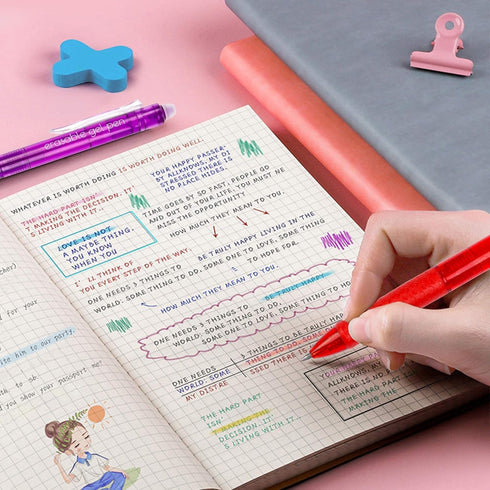 erasable gel pen
WHATEVER IS WORTH DOING IS WORTH DOING WELL.
THE HARD PART ISN'
T MAKING THE DECISION. IT'
S LIVING WITH IT...
YOUR HAPPY PASSER'
BY ALLKNOWS, MY DI
STRESSED THERE IS
NO PLACE HIDES.
LOVE IS NOT
A MAYBE THING,
YOU KNOW
WHEN YOU
TIME GOES BY SO FAST, PEOPLE GO
AND OUT OF YOUR LIFE. YOU MUST NE
MISS THE OPPORTUNITY
HOW MUCH THEY MEAN TO YOU.
I' LL THINK OF
YOU EVERY STEP OF THE WAY.
BE TRULY HAPPY LIVING IN THE
ONE NEEDS 3 THINGS TO
WORLD: SOME THING TO DO, SOME ONE TO LOVE, SOME THING
TO HOPE FOR.
HOW MUCH THEY MEAN TO YOU.
ONE NEEDS 3 THINGS TO BE TRULY HAPPY
WORLD: SOME THING TO DO, SOME ONE TO LOVE, SOME THING TO HO
ONE NEEDS 3 THINGS TO BE TRULY HAPPY
THING TO DO, SOM
SSED THERE IS
ONE NEEDS
WORLD: SOME
MY DISTRE
ALLKNOWS, MY
THERE IS NO P
THE HARD PART
MAKING THE
THE HARD PART
ISN'
T MAKING THE
DECISION. IT'
S LIVING WITH IT...
for your
him to our party.
th, to sb.
d you show your passport me?